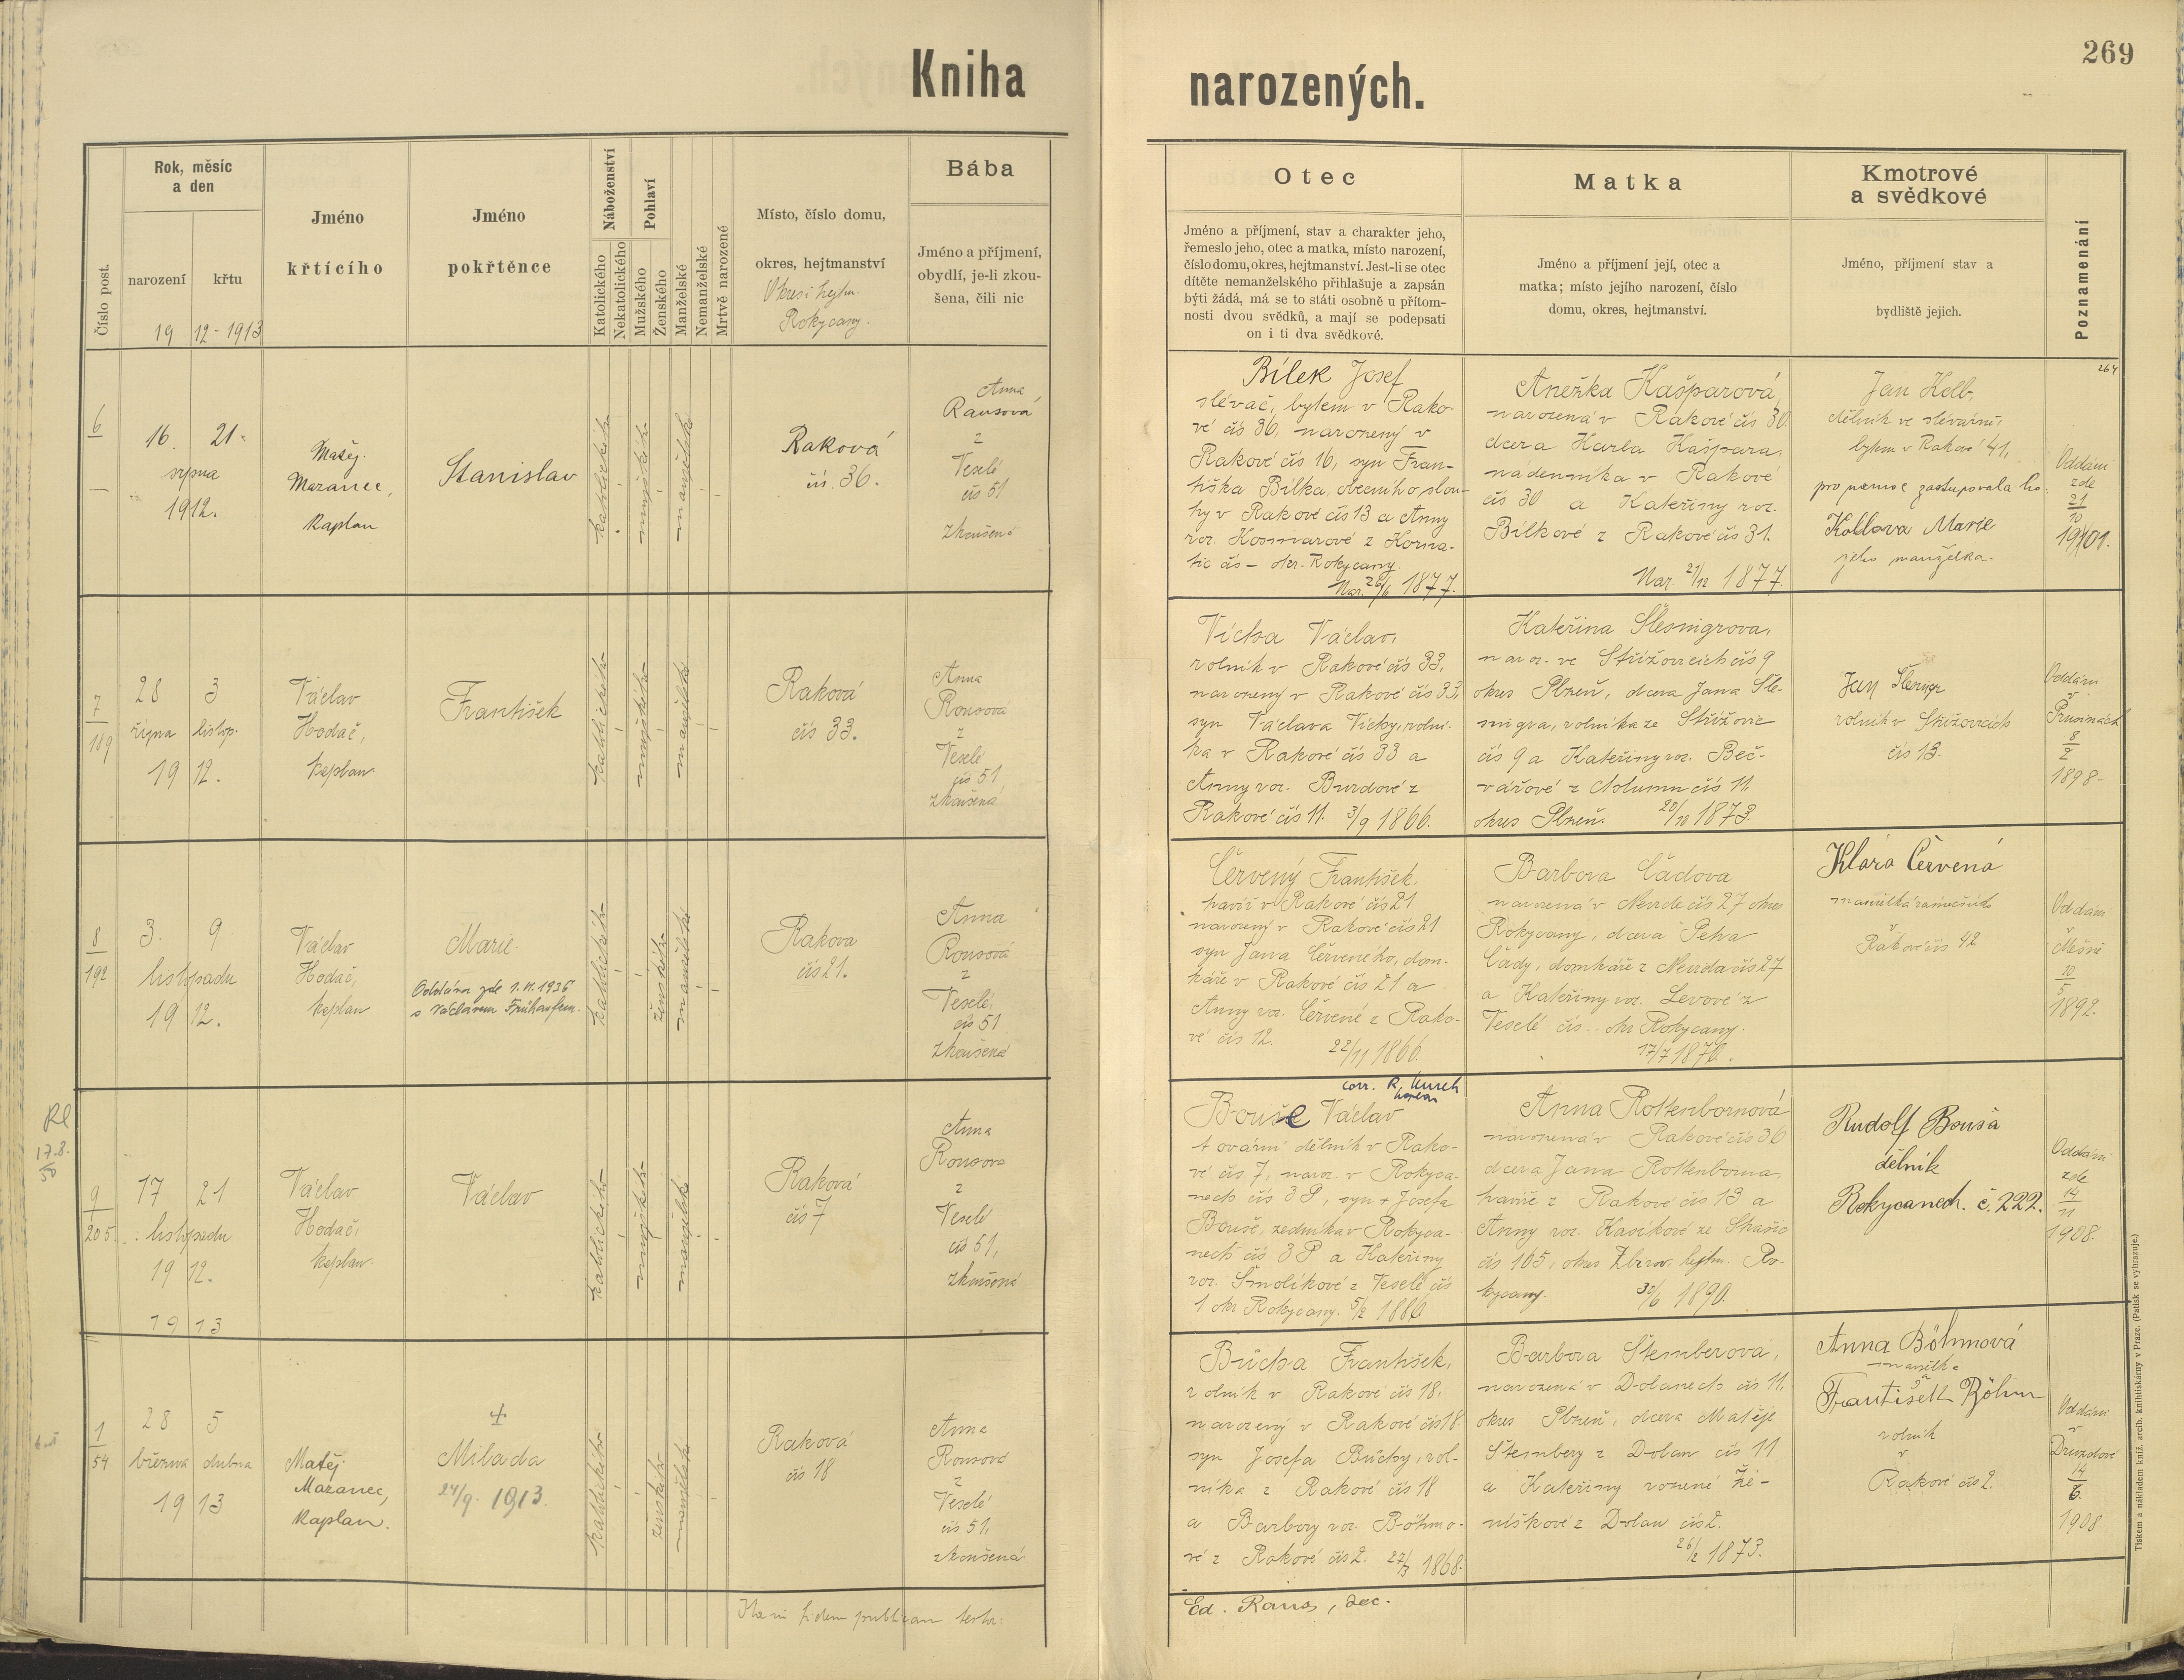 Kniha
narozených.
269
Číslo post.
Rok, měsíc
a den
narození
křtu
19 12 - 1913
Jméno
křtícího
Jméno
pokřtěnce
Náboženství
Katolického
Nekatolického
Pohlaví
Mužského
Ženského
Manželské
Nemanželské
Mrtvě narozené
Místo, číslo domu,
okres, hejtmanství
Rokycany.
Bába
Jméno a příjmení,
obydlí, je-li zkou-
šena, čili nic
Otec
Jméno a příjmení, stav a charakter jeho,
řemeslo jeho, otec a matka, místo narození,
číslo domu, okres, hejtmanství. Jest-li se otec
dítěte nemanželského přihlašuje a zapsán
býti žádá, má se to státi osobně u přítom-
nosti dvou svědků, a mají se podepsati
on i ti dva svědkové.
Matka
Jméno a příjmení její, otec a
matka; místo jejího narození, číslo
domu, okres, hejtmanství.
Kmotrové
a svědkové
Jméno, příjmení stav a
bydliště jejich.
Poznamenání
6
16. 21.
srpna
1912.
Matěj
Mazanec,
Kaplan
Stanislav
katolického
mužského
manželské
Raková
čís. 36.
Anna
Rausová
z
Veselé
čís 51
zkoušená
Bílek Josef
slévač, bytem v Rako-
vé čís 36, narozený v
Rakové čís 16, syn Fran-
tiška Bílka, obecního slou-
hy v Rakové čís 13 a Anny
roz. Kosmarové z Korna-
tic čís - okr. Rokycany.
Nar. 26/6 1877.
Anežka Kašparová,
narozená v Rakové čís 30
dcera Karla Kašpara,
nádenníka v Rakové
čís 30 a Kateřiny roz.
Bílkové z Rakové čís 31.
Nar. 21/12 1877.
Jan Kolb,
dělník ve slévárně,
bytem v Rakové 41,
pro nemoc zastupovala ho
Kolbova Marie
jeho manželka.
264
Oddáni
zde
21
10
1901.
7
189
28 3
října listop.
19 12.
Václav
Hodač,
kaplan
František
katolického
mužského
manželské
Raková
čís 33.
Anna
Rousová
z
Veselé
čís 51
zkoušená
Vícha Václav,
rolník v Rakové čís 33,
narozený v Rakové čís 33,
syn Václava Víchy, rolní-
ka v Rakové čís 33 a
Anny roz. Burdové z
Rakové čís 11. 3/9 1866.
Kateřina Šlesnigrova,
naroz. ve Střížovicích čís 9
okres Plzeň, dcera Jana Šle-
snigra, rolníka ze Střížovic
čís 9 a Kateřiny roz. Beč-
vářové z čís 11
okres Plzeň. 20/10 1873.
Jan
rolník v Střížovicích
čís 13.
Oddáni
v
Prusinách
8
2
1898-
8
192
3. 9
listopadu
19 12.
Václav
Hodač,
kaplan
Marie
Oddána zde 1.VI.1936
s Václavem Frühaufem.
katolického
ženského
manželské
Rakova
čís 21.
Anna
Rousová
z
Veselé,
čís 51
zkoušená
Červený František,
havíř v Rakové čís 21
narozený v Rakové čís 21
syn Jana Červeného, dom-
káře v Rakové čís 21 a
Anny roz. Červené z Rako-
vé čís 12. 22/11 1866.
Barbora Čadova
narozená v Nevidě čís 27 okres
Rokycany, dcera Petra
Čady, domkáře z Nevida čís 27
a Kateřiny roz. Levové z
Veselé čís - okr Rokycany.
17/7 1870.
Klára Červená
manželka
v
Rakové čís 42
Oddáni
v
10
5
1892.
Rl
17.8.
50
9
205
17 21
listopadu
19 12.
Václav
Hodač,
kaplan
Václav
katolického
mužského
manželské
Raková
čís 7
Anna
Rousova
z
Veselé
čís 51,
zkoušená
corr. R.
Bouše Václav
tovární dělník v Rako-
vé čís 7, naroz. v Rokyca-
nech čís 3 P, syn + Josefa
Bouše, zedníka v Rokyca-
nech čís 3 P a Kateřiny
roz. Smolíkové z Veselé čís
1 okr Rokycany. 5/2 1886.
Anna Rottenbornová
narozená v Rakové čís 36
dcera Jana Rottenborna,
havíře z Rakové čís 13 a
Anny roz. Kasíkové ze Strašic
čís 165, okres Zbirov, hejtm. Ro-
kycany. 30/6 1890.
Rudolf Bouša
dělník
Rokycanech. č. 222.
Oddáni
zde
14
11
1908.
19 13
1
54
28 5
března dubna
19 13
Matěj
Mazanec,
Kaplan.
+
Milada
24/9. 1913.
katolického
ženského
manželské
Raková
čís 18
Anna
Rousová
z
Veselé
čís 51,
zkoušená
Bůcha František,
rolník v Rakové čís 18,
narozený v Rakové čís 18
syn Josefa Bůchy, rol-
níka z Rakové čís 18
a Barbory roz. Böhmo-
vé z Rakové čís 2. 22/3 1868.
Barbora Štemberová,
narozená v Dolanech čís 11,
okres Plzeň, dcera Matěje
Štembery z Dolan čís 11
a Kateřiny rozené Že-
níškové z Dolan čís 2.
26/2 1873.
Anna Böhmová
manželka
František Böhm
rolník
v
Rakové čís 2.
Oddáni
v
Druzdové
14
6.
1908
Ita in fidem publicam testor:
Ed. Raus, dec.
Tiskem a nákladem kníž. arcib. knihtiskárny v Praze. (Patisk se vyhrazuje.)